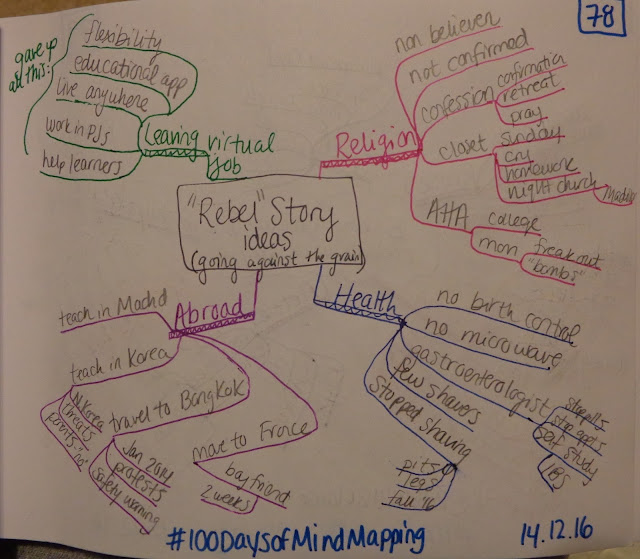 78
gave up
all this:
flexibility
educational app
live anywhere
work in PJs
help learners
Leaving virtual
job
Religion
non believer
not confirmed
confession
confirmation
retreat
pray
closet
Sunday
cry
homework
night church
AHA
college
mom
freak out
"bombs"
"Rebel" Story
ideas
(going against the grain)
Abroad
teach in Madrid
teach in Korea
N.Korea
threats
parents "no"
travel to Bangkok
Jan 2014
protests
safety warning
move to France
boyfriend
2 weeks
Health
no birth control
no microwave
gastroenterologist
stop pills
stop appts
self study
IBS
few showers
stopped shaving
pits
legs
fall '16
#100DaysofMindMapping
14.12.16